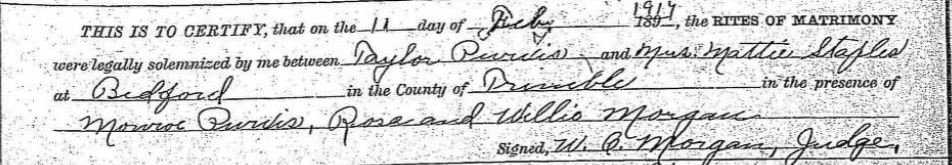 THIS IS TO CERTIFY, that on the 11 day of Feby 1917 189 , the RITES OF MATRIMONY
were legally solemnized by me between Taylor Purvis and Mrs. Mattie Staples
at Bedford in the County of Trimble in the presence of
Monroe Purvis, Rosa and Willie Morgan
Signed, W. C. Morgan, Judge,